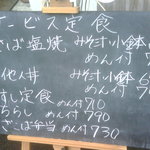 サービス定食
さば塩焼 みそ汁小鉢
めん付
他人丼 みそ汁小鉢
めん付
すし定食 めん付 710
ちらし めん付 790
弁当 めん付 730